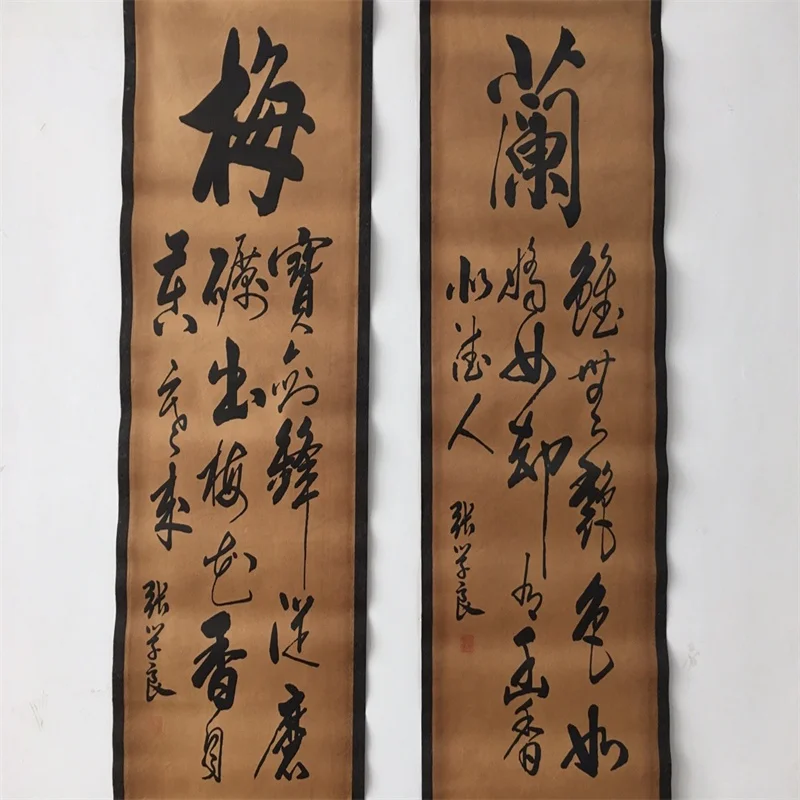 梅
寶劍鋒從磨
礪出梅花香自
苦寒來
張學良
蘭
雖無艷色如
嬌女卻有幽香
似德人
張學良